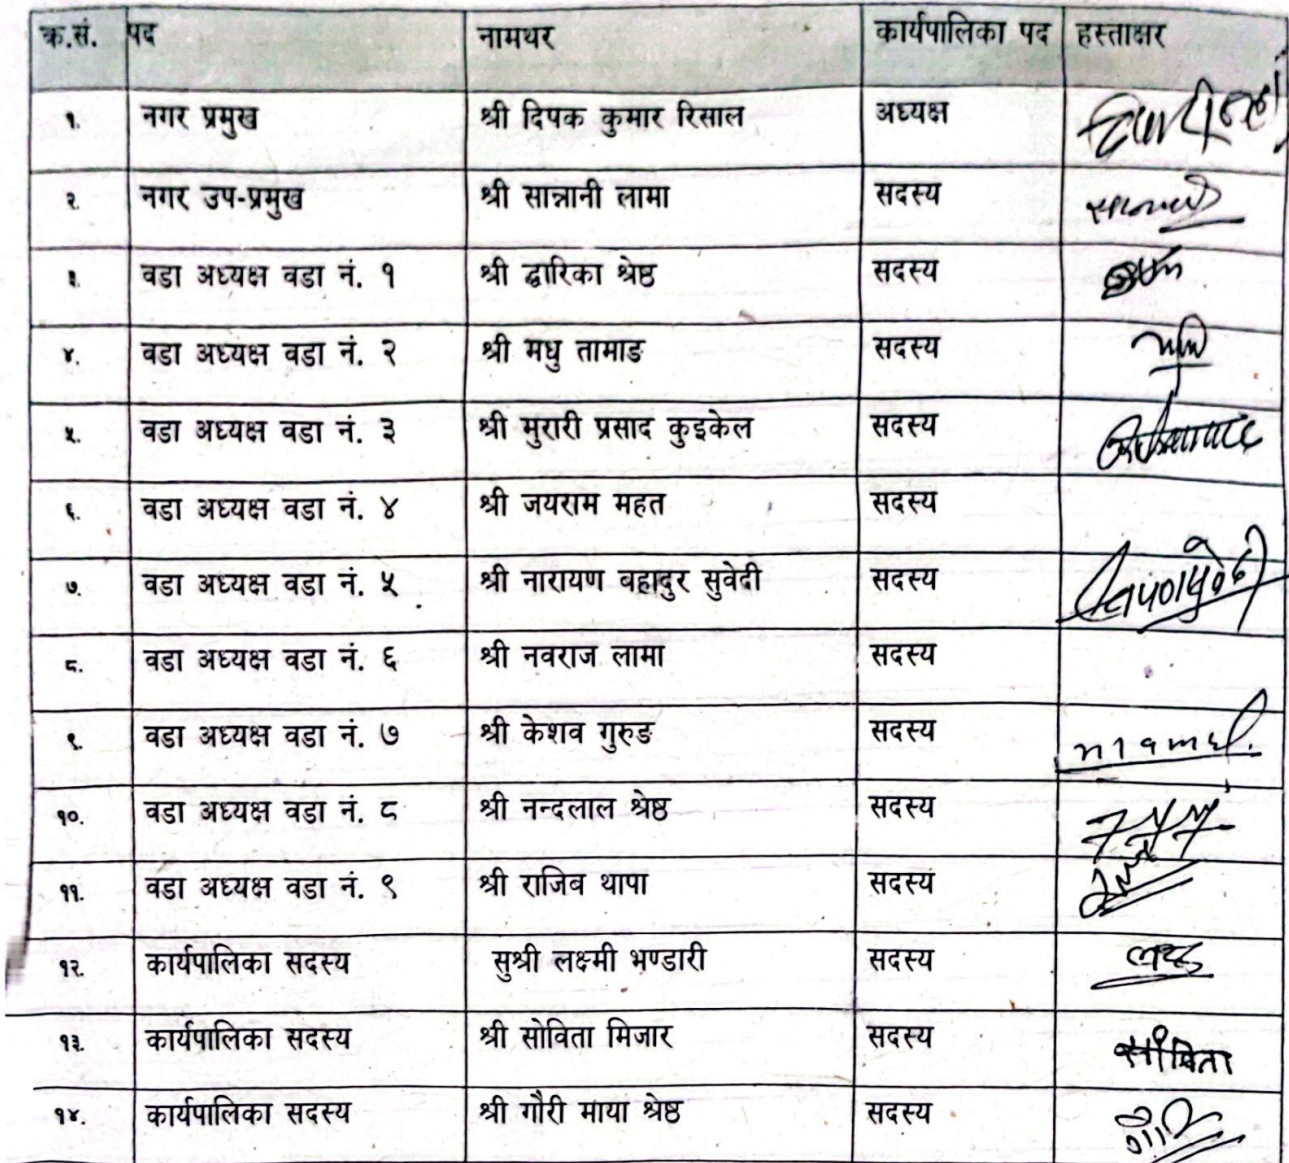 क.सं. पद नामथर कार्यपालिका पद हस्ताक्षर
१. नगर प्रमुख श्री दिपक कुमार रिसाल अध्यक्ष
२. नगर उप-प्रमुख श्री सान्नानी लामा सदस्य
३. वडा अध्यक्ष वडा नं. १ श्री द्वारिका श्रेष्ठ सदस्य
४. वडा अध्यक्ष वडा नं. २ श्री मधु तामाङ सदस्य
५. वडा अध्यक्ष वडा नं. ३ श्री मुरारी प्रसाद कुइकेल सदस्य
६. वडा अध्यक्ष वडा नं. ४ श्री जयराम महत सदस्य
७. वडा अध्यक्ष वडा नं. ५ श्री नारायण बहादुर सुवेदी सदस्य
८. वडा अध्यक्ष वडा नं. ६ श्री नवराज लामा सदस्य
९. वडा अध्यक्ष वडा नं. ७ श्री केशव गुरुङ सदस्य
१०. वडा अध्यक्ष वडा नं. ८ श्री नन्दलाल श्रेष्ठ सदस्य
११. वडा अध्यक्ष वडा नं. ९ श्री राजिव थापा सदस्य
१२. कार्यपालिका सदस्य सुश्री लक्ष्मी भण्डारी सदस्य
१३. कार्यपालिका सदस्य श्री सोविता मिजार सदस्य सोविता
१४. कार्यपालिका सदस्य श्री गौरी माया श्रेष्ठ सदस्य